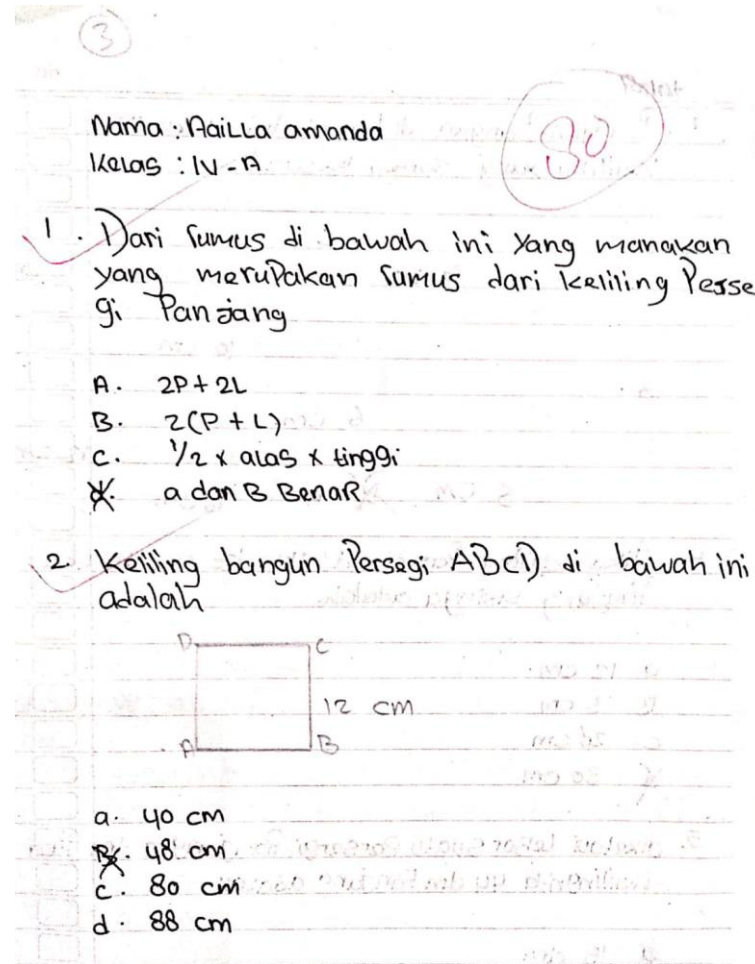 3
80
Nama : Nailla amanda
Kelas : IV - A
1. Dari rumus di bawah ini yang manakan
yang merupakan rumus dari keliling Perse
gi Panjang
A. 2P + 2L
B. 2(P + L)
C. 1/2 x alas x tinggi
a dan B BenaR
2 Keliling bangun Persegi ABCD di bawah ini
adalah
D C
12 cm
A B
a. 40 cm
B. 48 cm
c. 80 cm
d. 88 cm